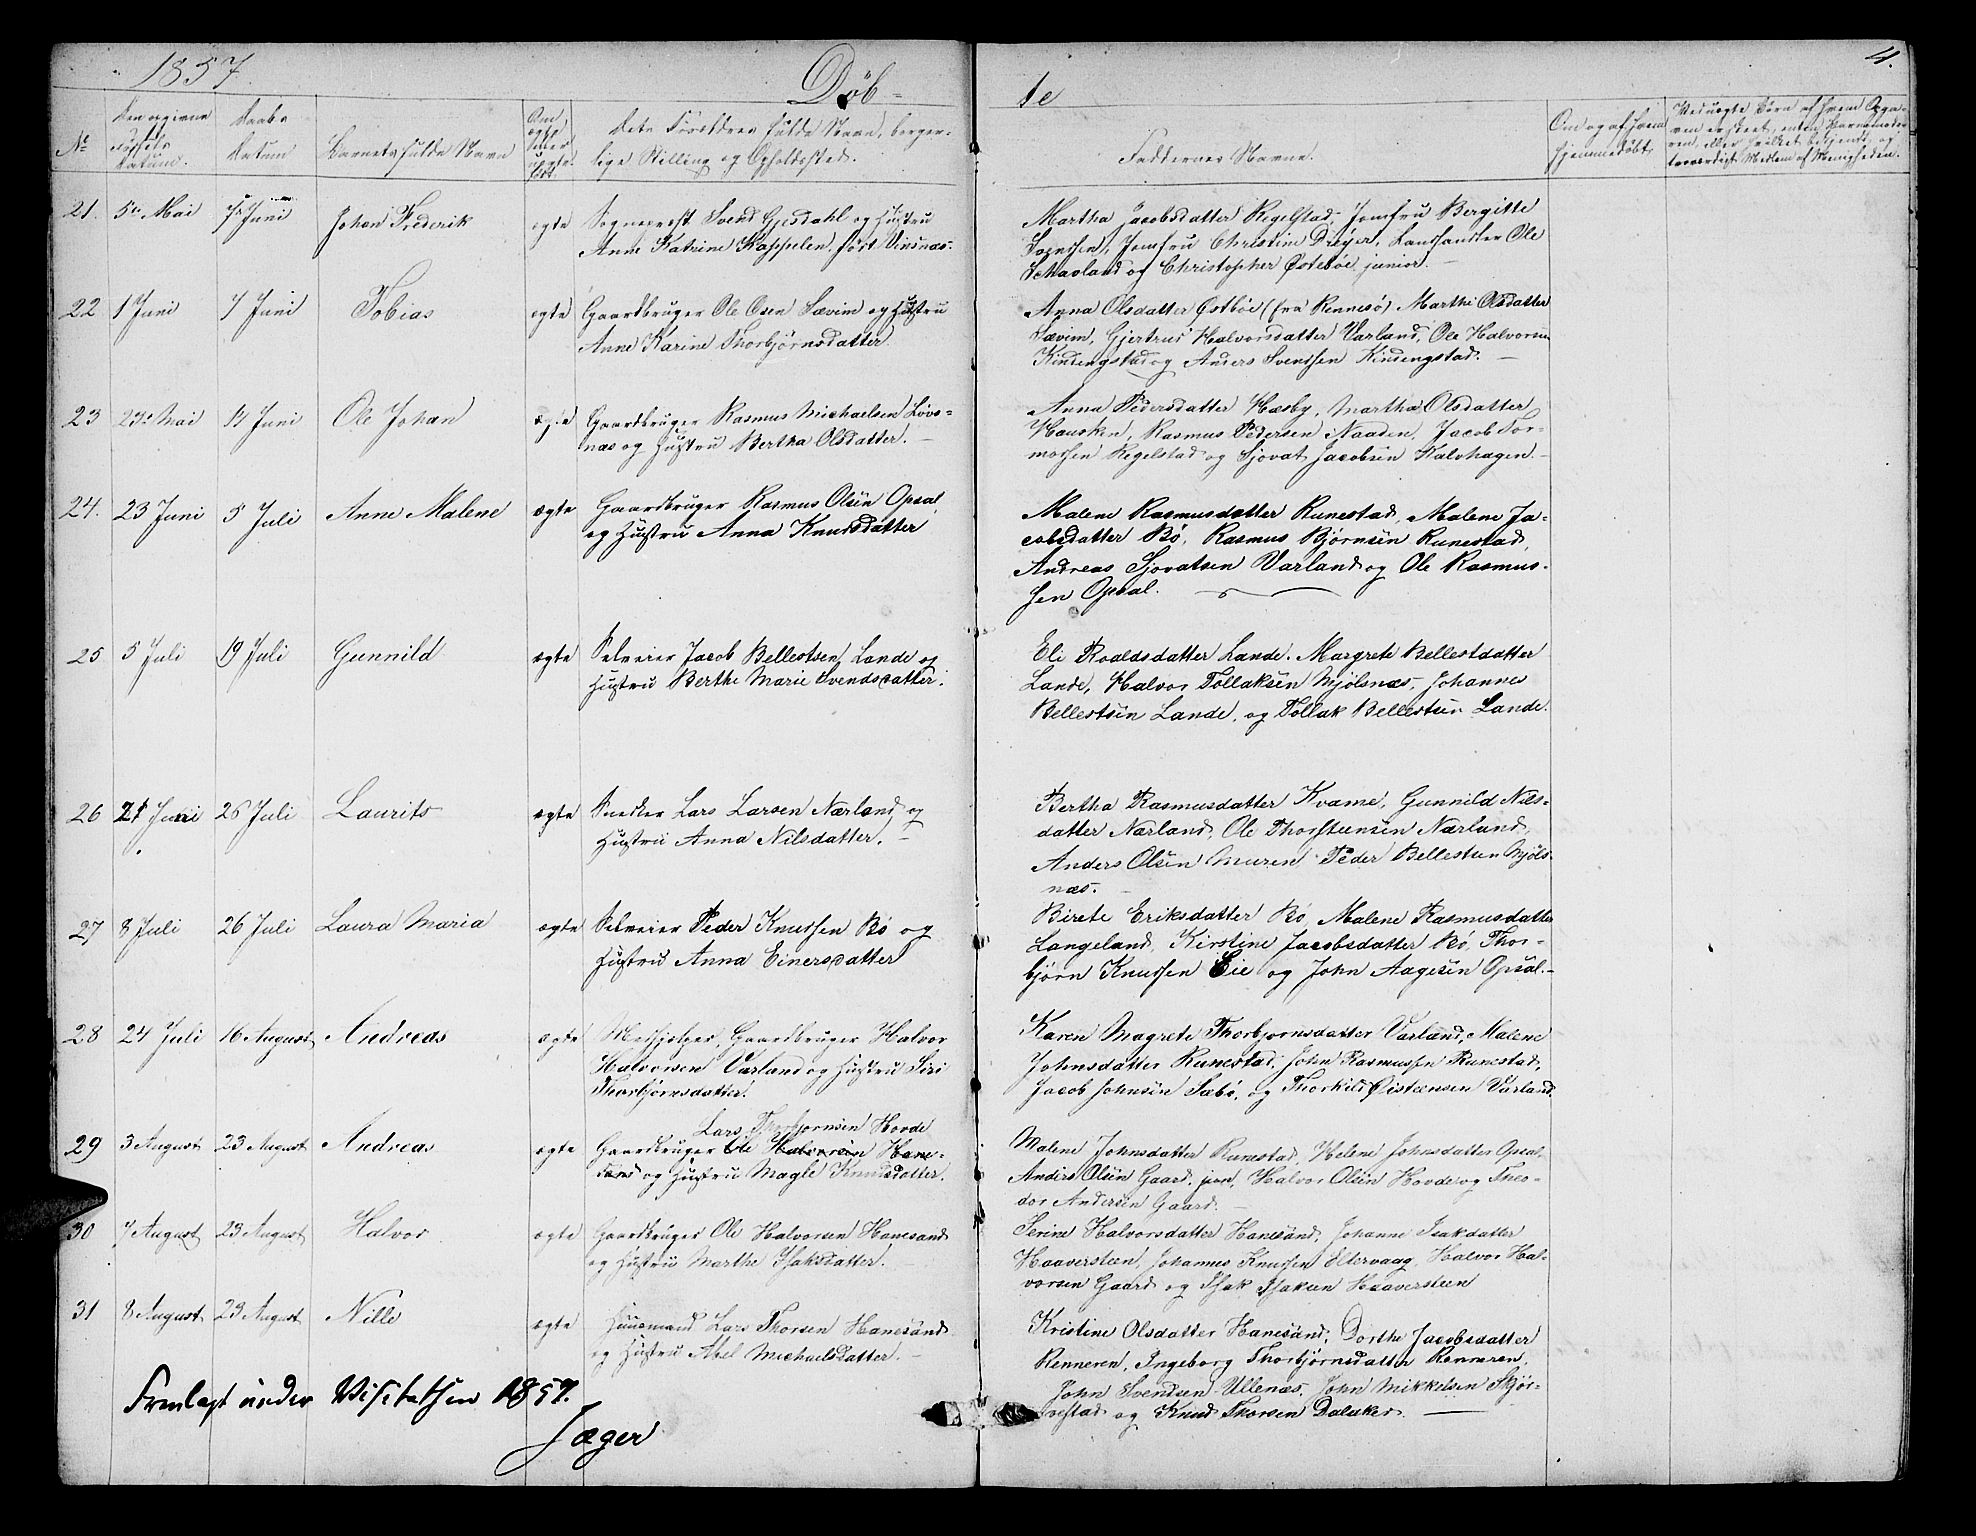 1857.
Døb-
te
4.
No
Den opgivne
Fødsels
Datum.
Daabs
Datum
Barnets fulde Navn
Om
ægte
eller
uægte
født.
Dets Forældres fulde Navn, borger-
lige Stilling og Opholdssted.
Faddernes Navne.
Om og af hvem
hjemmedøbt
Ved uægte Børn af hvem Opga-
ven er skeet, enten Barnemode-
ren, eller hvilket bekjendt og
troværdigt Medlem af Menigheden.
21. 5te Mai 7 Juni Johan Frederik ægte Sogneprest Svend Gjesdahl og Hustru
Anne Katrine Kappelen, født Vinsnæs.
Martha Jacobsdatter Regelstad, Jomfru Bergitte
Jomfru Christine Dreyer, Landhandler Ole
Schavland og Christopher Østebøe junior. —
22 1 Juni 7 Juni Tobias ægte Gaardbruger Ole Osen Sævim og Hustru
Anne Karine Thorbjørnsdatter
Anna Olsdatter Østbøe (fra Rennesø) Marthe Olsdatter
Sævim, Gjertrud Halvorsdatter Varland, Ole Halvorsen
Kindengstad og Anders Svendsen Kindengstad. —
23 23de Mai 14 Juni Ole Johan ægte Gaardbruger Rasmus Michaelsen Løvs-
næs og Hustru Bertha Olsdatter. —
Anna Pedersdatter Hæsby, Martha Olsdatter
Hausken, Rasmus Pedersen Naaden, Jacob Tor-
mossen Regelstad og Sjovat Jacobsen Kalvhagen. —
24. 23 Juni 5 Juli Anne Malene ægte Gaardbruger Rasmus Olsen Opsal
og Hustru Anna Knudsdatter
Malene Rasmusdatter Runestad, Malene Ja-
cobsdatter Bø, Rasmus Bjørnsen Runestad,
Andreas Sjovatsen Varland og Ole Rasmus-
sen Opsal.
25 5 Juli 19 Juli Gunnild ægte Selveier Jacob Bellestsen Lande og
Hustru Berthe Marie Svendsdatter.
Eli Roaldsdatter Lande, Margrete Bellestdatter
Lande, Halvor Tollaksen Mjølsnæs, Johannes
Bellestsen Lande, og Tollak Bellestsen Lande.
26 21 Juni 26 Juli Laurits ægte Snedker Lars Larsen Nærland og
Hustru Anna Nilsdatter. —
Bertha Rasmusdatter Kvame, Gunnild Nils-
datter Nærland, Ole Thorsteensen Nærland,
Anders Olsen Muren, Peder Bellestsen Mjøls-
næs. —
27 8 Juli 26 Juli Laura Maria ægte Selveier Peder Knudsen Bø og
Hustru Anna Einersdatter
Birete Eriksdatter Bø, Malene Rasmusdatter
Langeland, Kirstine Jacobsdatter Bø, Thor-
bjørn Knudsen Eie og John Aagesen Opsal. —
28 24 Juli 16 August Andreas ægte Medhjelper, Gaardbruger Halvor
Halvorsen Varland og Hustru Siri
Thorbjørnsdatter.
Karen Magrete Thorbjornsdatter Varland, Malene
Johnsdatter Runestad, John Rasmussen Runestad,
Jacob Johnsen Sæbø, og Thorkild Øisteensen Varland.
Lars Thorbjornsen Hovde
29 3 August 23 August Andreas ægte Gaardbruger Ole Halvorsen Hane-
sand og Hustru Magle Knudsdatter.
Malene Johnsdatter Runestad, Helene Johnsdatter Opsal,
Anders Olsen Gaard, jun, Halvor Olsen Hovde og Theo-
dor Andersen Gaard. —
30 7 August 23 August Halvor ægte Gaardbruger Ole Halvorsen Hanesand
og Hustru Marthe Isaksdatter. —
Serine Halvorsdatter Hanesand, Johanne Isakdatter
Haaversteen, Johannes Knudsen Eltervaag, Halvor Hal-
vorsen Gaard og Isak Isaksen Haaversteen
31 8 August 23 August Nille ægte Huusmand Lars Thorsen Hanesand
og Hustru Abel Michaelsdatter. —
Kristine Olsdatter Hanesand, Dorthe Jacobsdatter
Renneren, Ingeborg Thorbjørnsdatter Renneren,
John Svendsen Ullenæs, John Mikkelsen Skjør-
vestad og Knud Thorsen Dalaker. —
Fremlagt under Visitatsen 1857.
Jæger